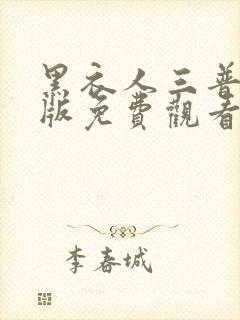 黑衣人三普
版免費觀看
李春城